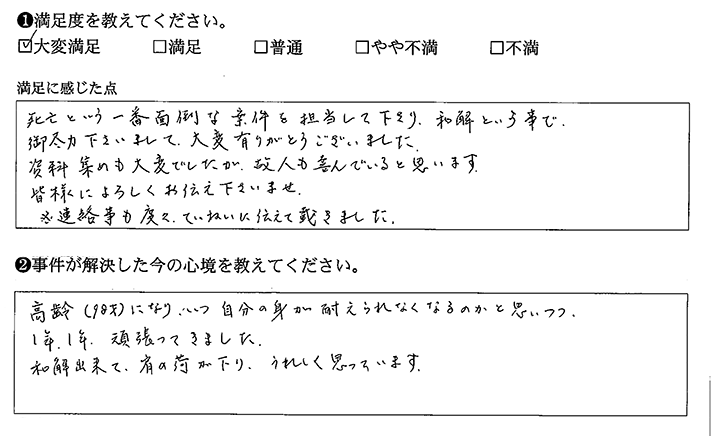 ❶満足度を教えてください。
☑大変満足 □満足 □普通 □やや不満 □不満
満足に感じた点
死亡という一番面倒な案件を担当して下さり、和解という事で、
御尽力下さいまして、大変有りがとうございました。
資料集めも大変でしたが、故人も喜んでいると思います。
皆様によろしくお伝え下さいませ。
※連絡事も度々、ていねいに伝えて戴きました。
❷事件が解決した今の心境を教えてください。
高齢(98才)になり、いつ自分の身が耐えられなくなるのかと思いつつ、
1年、1年、頑張ってきました。
和解出来て、肩の荷が下り、うれしく思っています。